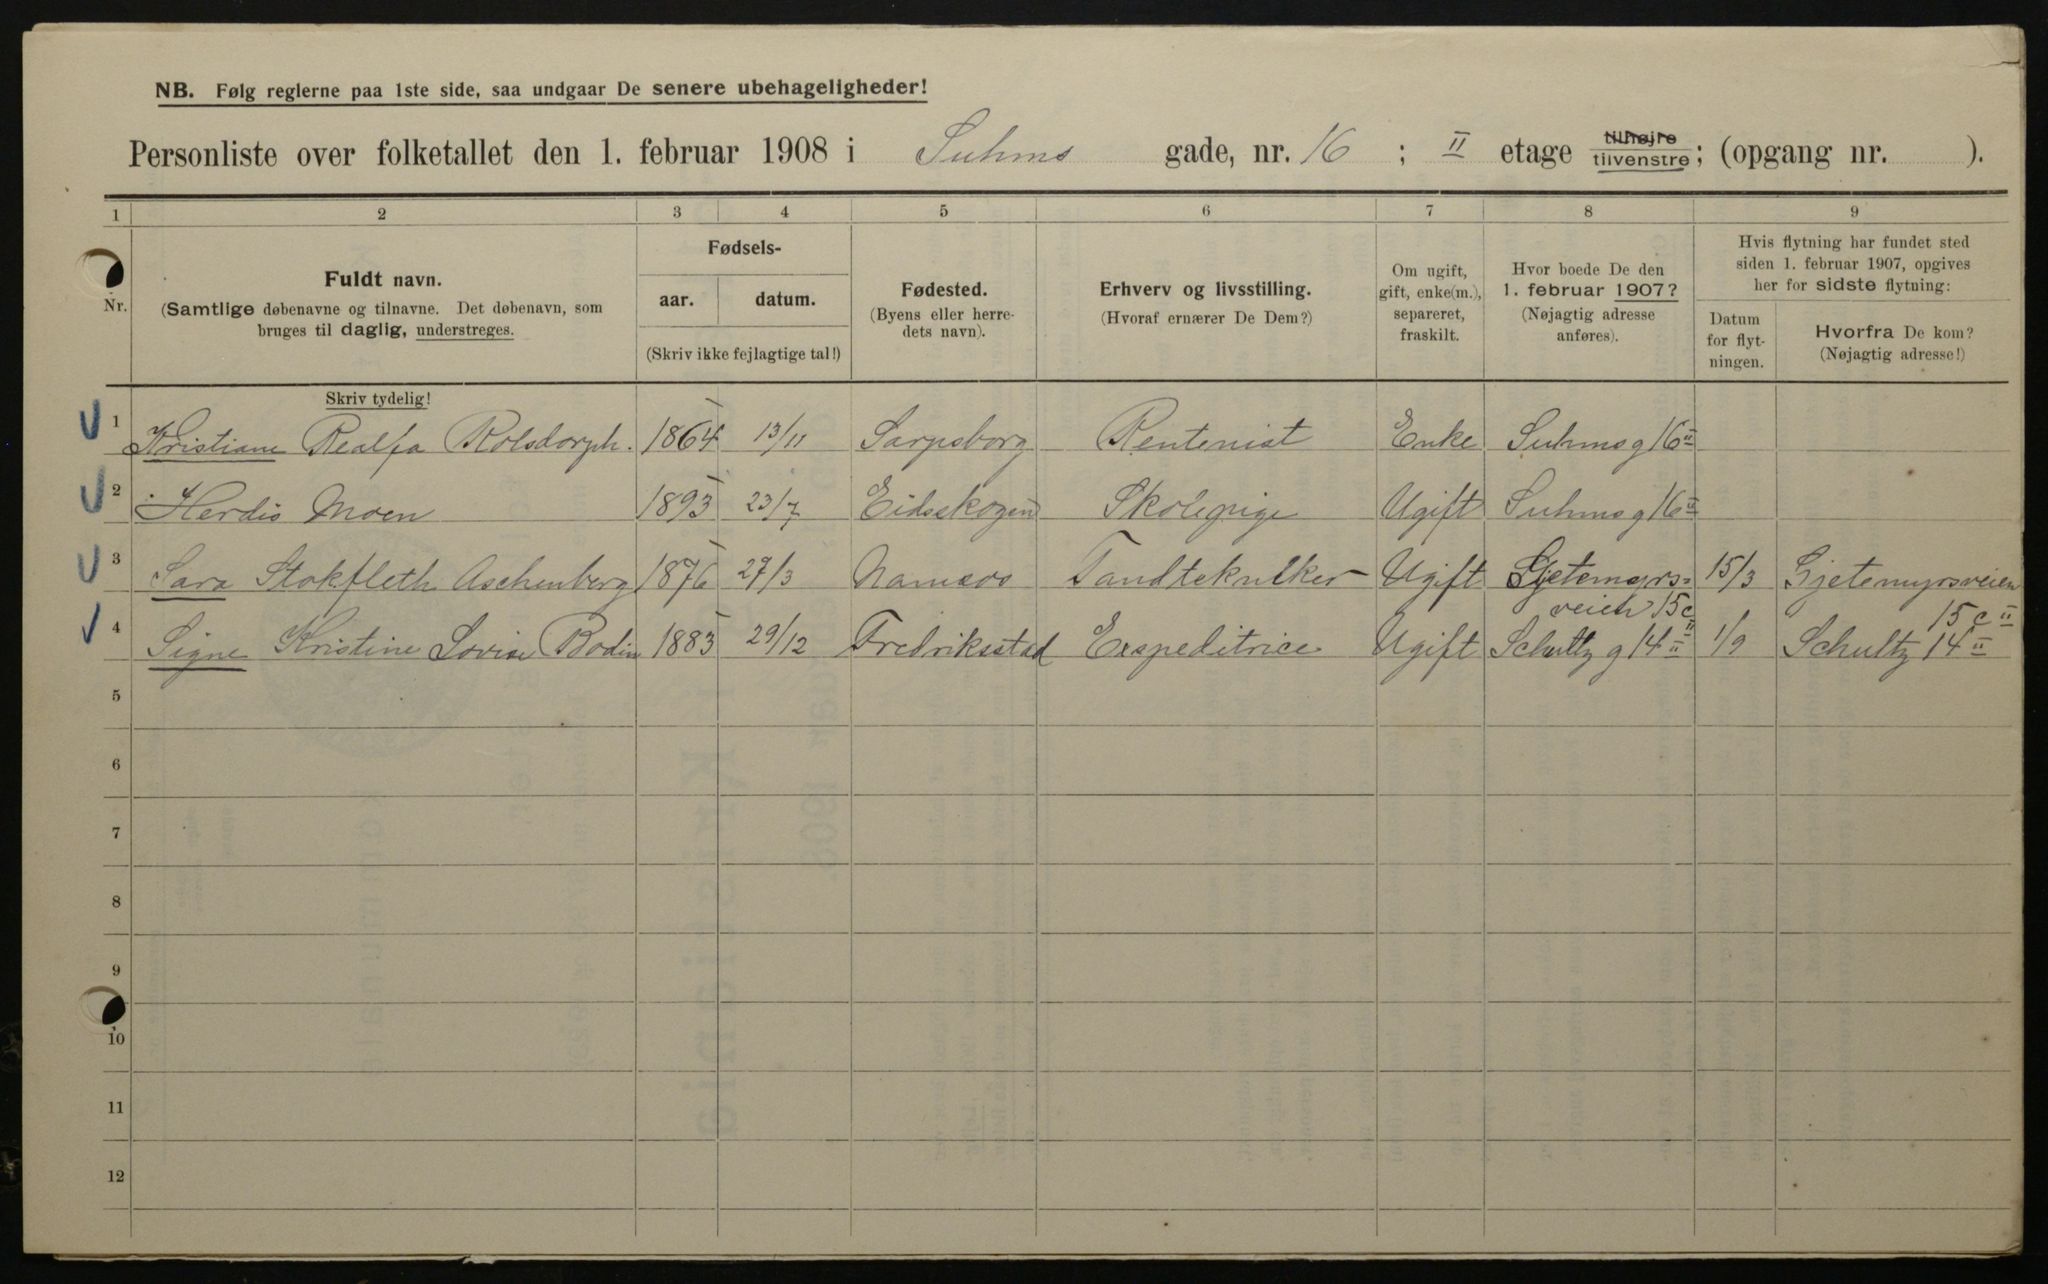 NB. Følg reglerne paa 1ste side, saa undgaar De senere ubehageligheder!
Personliste over folketallet den 1. februar 1908 i Suhms gade, nr. 16 ; II etage tilhøjre tilvenstre; (opgang nr. ).
1 2 3 4 5 6 7 8 9
Nr.
Fuldt navn.
(Samtlige døbenavne og tilnavne. Det døbenavn, som
bruges til daglig, understreges.
Fødsels-
aar. datum.
(Skriv ikke fejlagtige tal!)
Fødested.
(Byens eller herre-
dets navn).
Erhverv og livsstilling.
(Hvoraf ernærer De Dem?)
Om ugift,
gift, enke(m.),
separeret,
fraskilt.
Hvor boede De den
1. februar 1907?
(Nøjagtig adresse
anføres).
Hvis flytning har fundet sted
siden 1. februar 1907, opgives
her for sidste flytning:
Datum
for flyt-
ningen.
Hvorfra De kom?
(Nøjagtig adresse!)
Skriv tydelig!
1 Kristiane Realfa Rolsdorph. 1864 13/11 Sarpsborg Rentenist Enke Suhmsg 16 II
2 Herdis Moen 1893 23/7 Eidsskogen Skolepige Ugift Suhmsg 16 II
3 Sara Stokfleth Aschenberg 1876 29/3 Namsos Tandtekniker Ugift Gjetemyrs- 15/3 Gjetemyrsveien
veien 15c II 15 c II
4 Signe Kristine Lovise Bodin 1883 29/12 Fredriksstad Exspeditrice Ugift Schultz g 14 II 1/9 Schultz 14 II
5
6
7
8
9
10
11
12